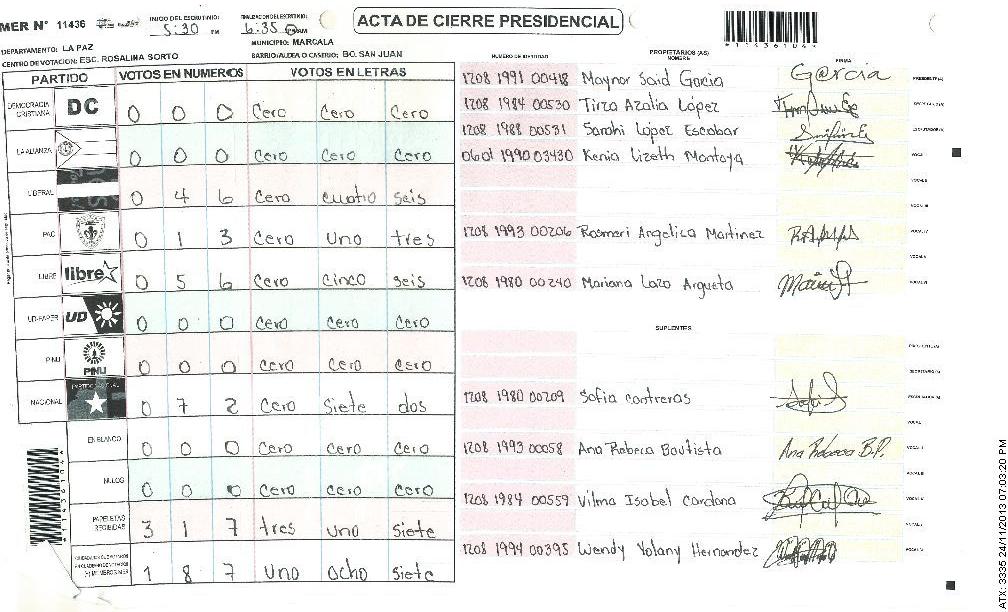 MER N° 11436
INICIO DEL ESCRUTINIO:
5:30 PM
FINALIZACION DE ESCRUTINIO:
6:35
ACTA DE CIERRE PRESIDENCIAL
*11436104*
DEPARTAMENTO: LA PAZ
MUNICIPIO: MARCALA
CENTRO DE VOTACION: ESC. ROSALINA SORTO
BARRIO/ALDEA O CASERIO: BO. SAN JUAN
PARTIDO VOTOS EN NUMEROS VOTOS EN LETRAS
DEMOCRACIA CRISTIANA DC 0 0 0 Cero Cero Cero
LA ALIANZA 0 0 0 Cero Cero Cero
LIBERAL 0 4 6 Cero cuatro seis
PAC 0 1 3 Cero uno tres
LIBRE libre 0 5 6 Cero cinco seis
UD-FAPER UD 0 0 0 Cero Cero Cero
PINU PINU 0 0 0 Cero Cero Cero
NACIONAL 0 7 2 Cero siete dos
EN BLANCO 0 0 0 Cero Cero Cero
NULOS 0 0 0 Cero Cero Cero
PAPELETAS RECIBIDAS 3 1 7 tres uno siete
1 8 7 uno ocho siete
*11436104*
NUMERO DE IDENTIDAD
PROPIETARIOS (AS)
NOMBRE
FIRMA
1208 1991 00418 Maynor Said Garcia Garcia PRESIDENTE(A)
1208 1984 00530 Tirza Azalia López SECRETARIO(A)
1208 1988 00531 Sarahi López Escobar ESCRUTADOR(A)
0601 1990 03430 Kenia Lizeth Montoya VOCAL I
VOCAL II
VOCAL III
1208 1993 00206 Rosmeri Angelica Martinez VOCAL IV
VOCAL V
1208 1980 00240 Mariana Lazo Argueta VOCAL VI
SUPLENTES
PRESIDENTE(A)
SECRETARIO(A)
1208 1980 00209 Sofia contreras ESCRUTADOR(A)
VOCAL I
1208 1993 00058 Ana Rebeca Bautista Ana Rebeca B.P. VOCAL II
VOCAL III
1208 1984 00559 Vilma Isabel Cardona VOCAL IV
VOCAL V
1208 1994 00395 Wendy Yolany Hernandez VOCAL VI
ATX: 3335 24/11/2013 07:03:20 PM